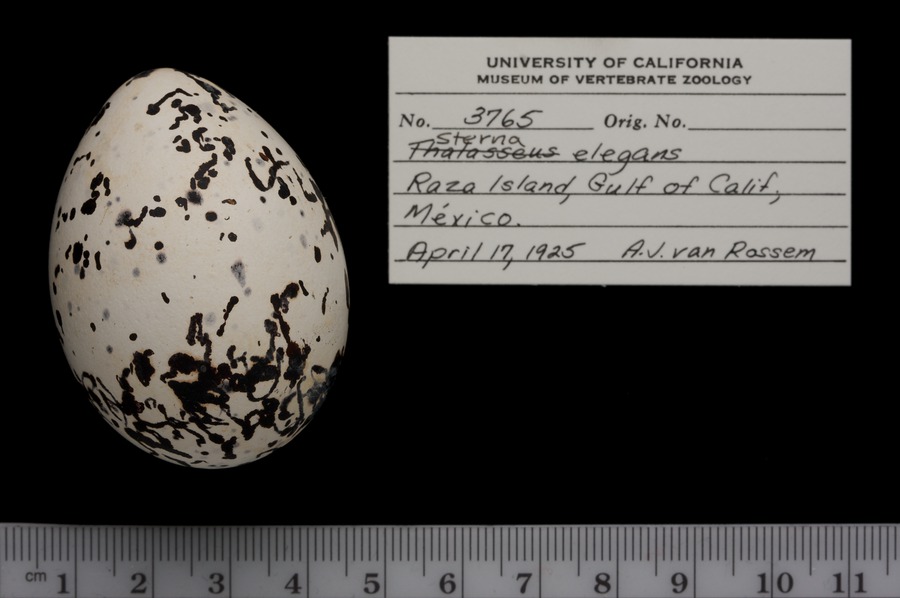 UNIVERSITY OF CALIFORNIA
MUSEUM OF VERTEBRATE ZOOLOGY
No. 3765 Orig. No.
Sterna
Thalasseus elegans
Raza Island, Gulf of Calif,
México.
April 17, 1925 A.J. van Rossem
cm 1 2 3 4 5 6 7 8 9 10 11